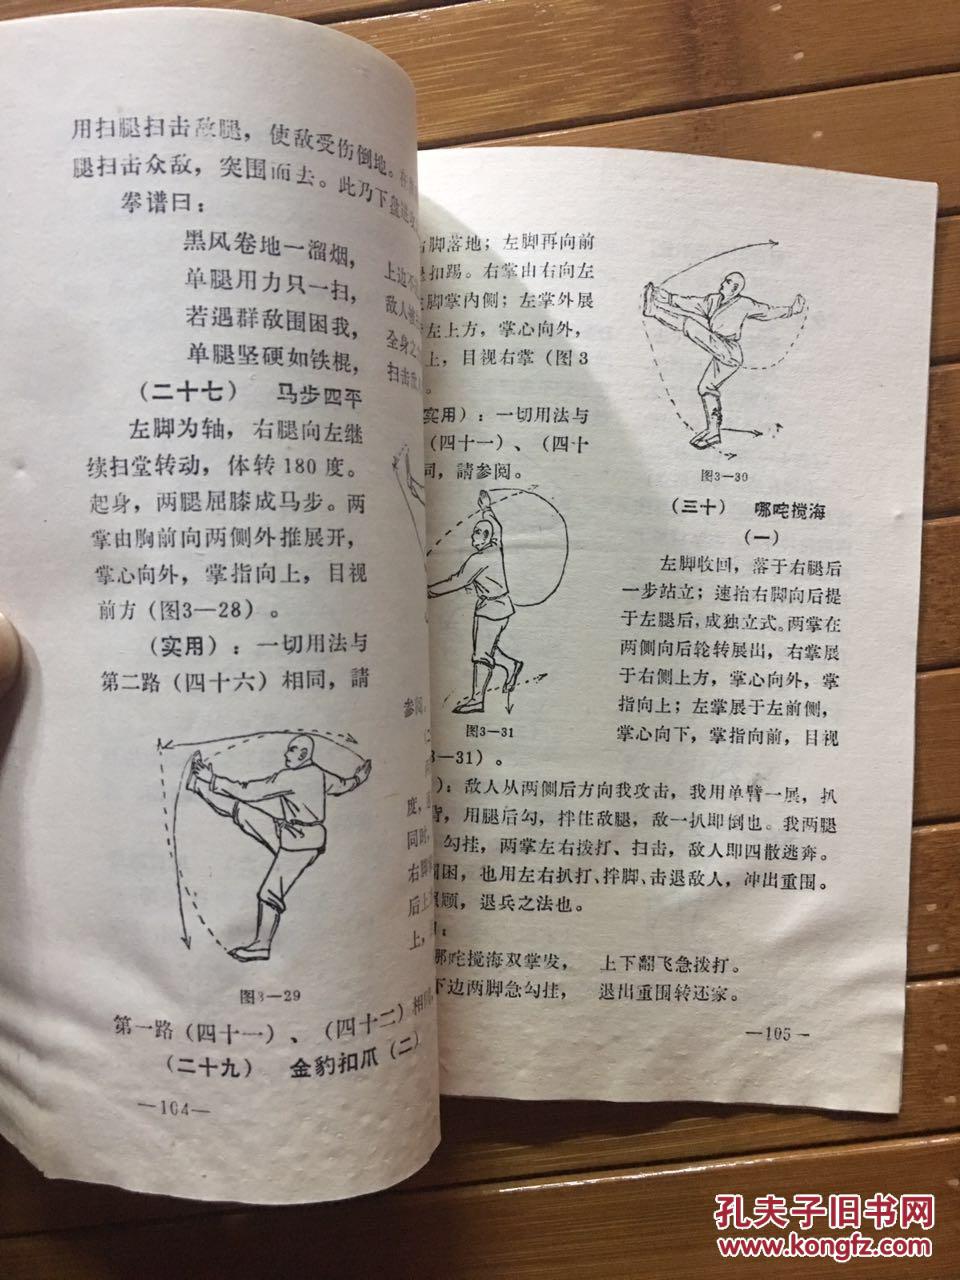 用扫腿扫击敌腿，使敌受伤倒地。
腿扫击众敌，突围而去。此乃下盘
拳谱曰：
黑风卷地一溜烟，
单腿用力只一扫，
若遇群敌围困我，
单腿坚硬如铁棍，
上边不
敌人
全身之
扫击敌
（二十七） 马步四平
左脚为轴，右腿向左继
续扫堂转动，体转180度。
起身，两腿屈膝成马步。两
掌由胸前向两侧外推展开，
掌心向外，掌指向上，目视
前方（图3—28）。
（实用）：一切用法与
第二路（四十六）相同，請
参阅。
度，
同时，
右脚
后上
上，
图3—29
第一路（四十一）、（四十二）相
（二十九） 金豹扣爪（二）
—104—
右脚落地；左脚再向前
扣踢。右掌由右向左
脚掌内侧；左掌外展
左上方，掌心向外，
上，目视右掌（图3
。
实用）：一切用法与
（四十一）、（四十
同，請参阅。
图3—30
图3—31
（三十） 哪咤搅海
（一）
左脚收回，落于右腿后
一步站立；速抬右脚向后提
于左腿后，成独立式。两掌在
两侧向后轮转展出，右掌展
于右侧上方，掌心向外，掌
指向上；左掌展于左前侧，
掌心向下，掌指向前，目视
3—31）。
）：敌人从两侧后方向我攻击，我用单臂一展，扒
背，用腿后勾，拌住敌腿，敌一扒即倒也。我两腿
勾挂，两掌左右拨打、扫击，敌人即四散逃奔。
困，也用左右扒打、拧脚、击退敌人，冲出重围。
顾，退兵之法也。
：
哪咤搅海双掌发， 上下翻飞急拨打。
下边两脚急勾挂， 退出重围转还家。
—105—
孔夫子旧书网
www.kongfz.com